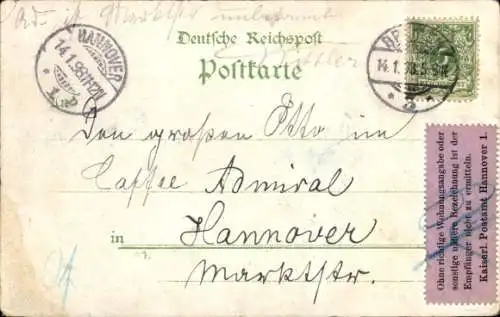 Adr. ist Marktstr unbekannt
Deutsche Reichspost
Postkarte
HANNOVER
14.1.98
14.1.98.
Den großen Otto im
Caffee Admiral
in Hannover
Marktstr.
Ohne richtige Wohnungsangabe oder
sonstige nähere Bezeichnung ist der
Empfänger nicht zu ermitteln.
Kaiserl. Postamt Hannover 1.